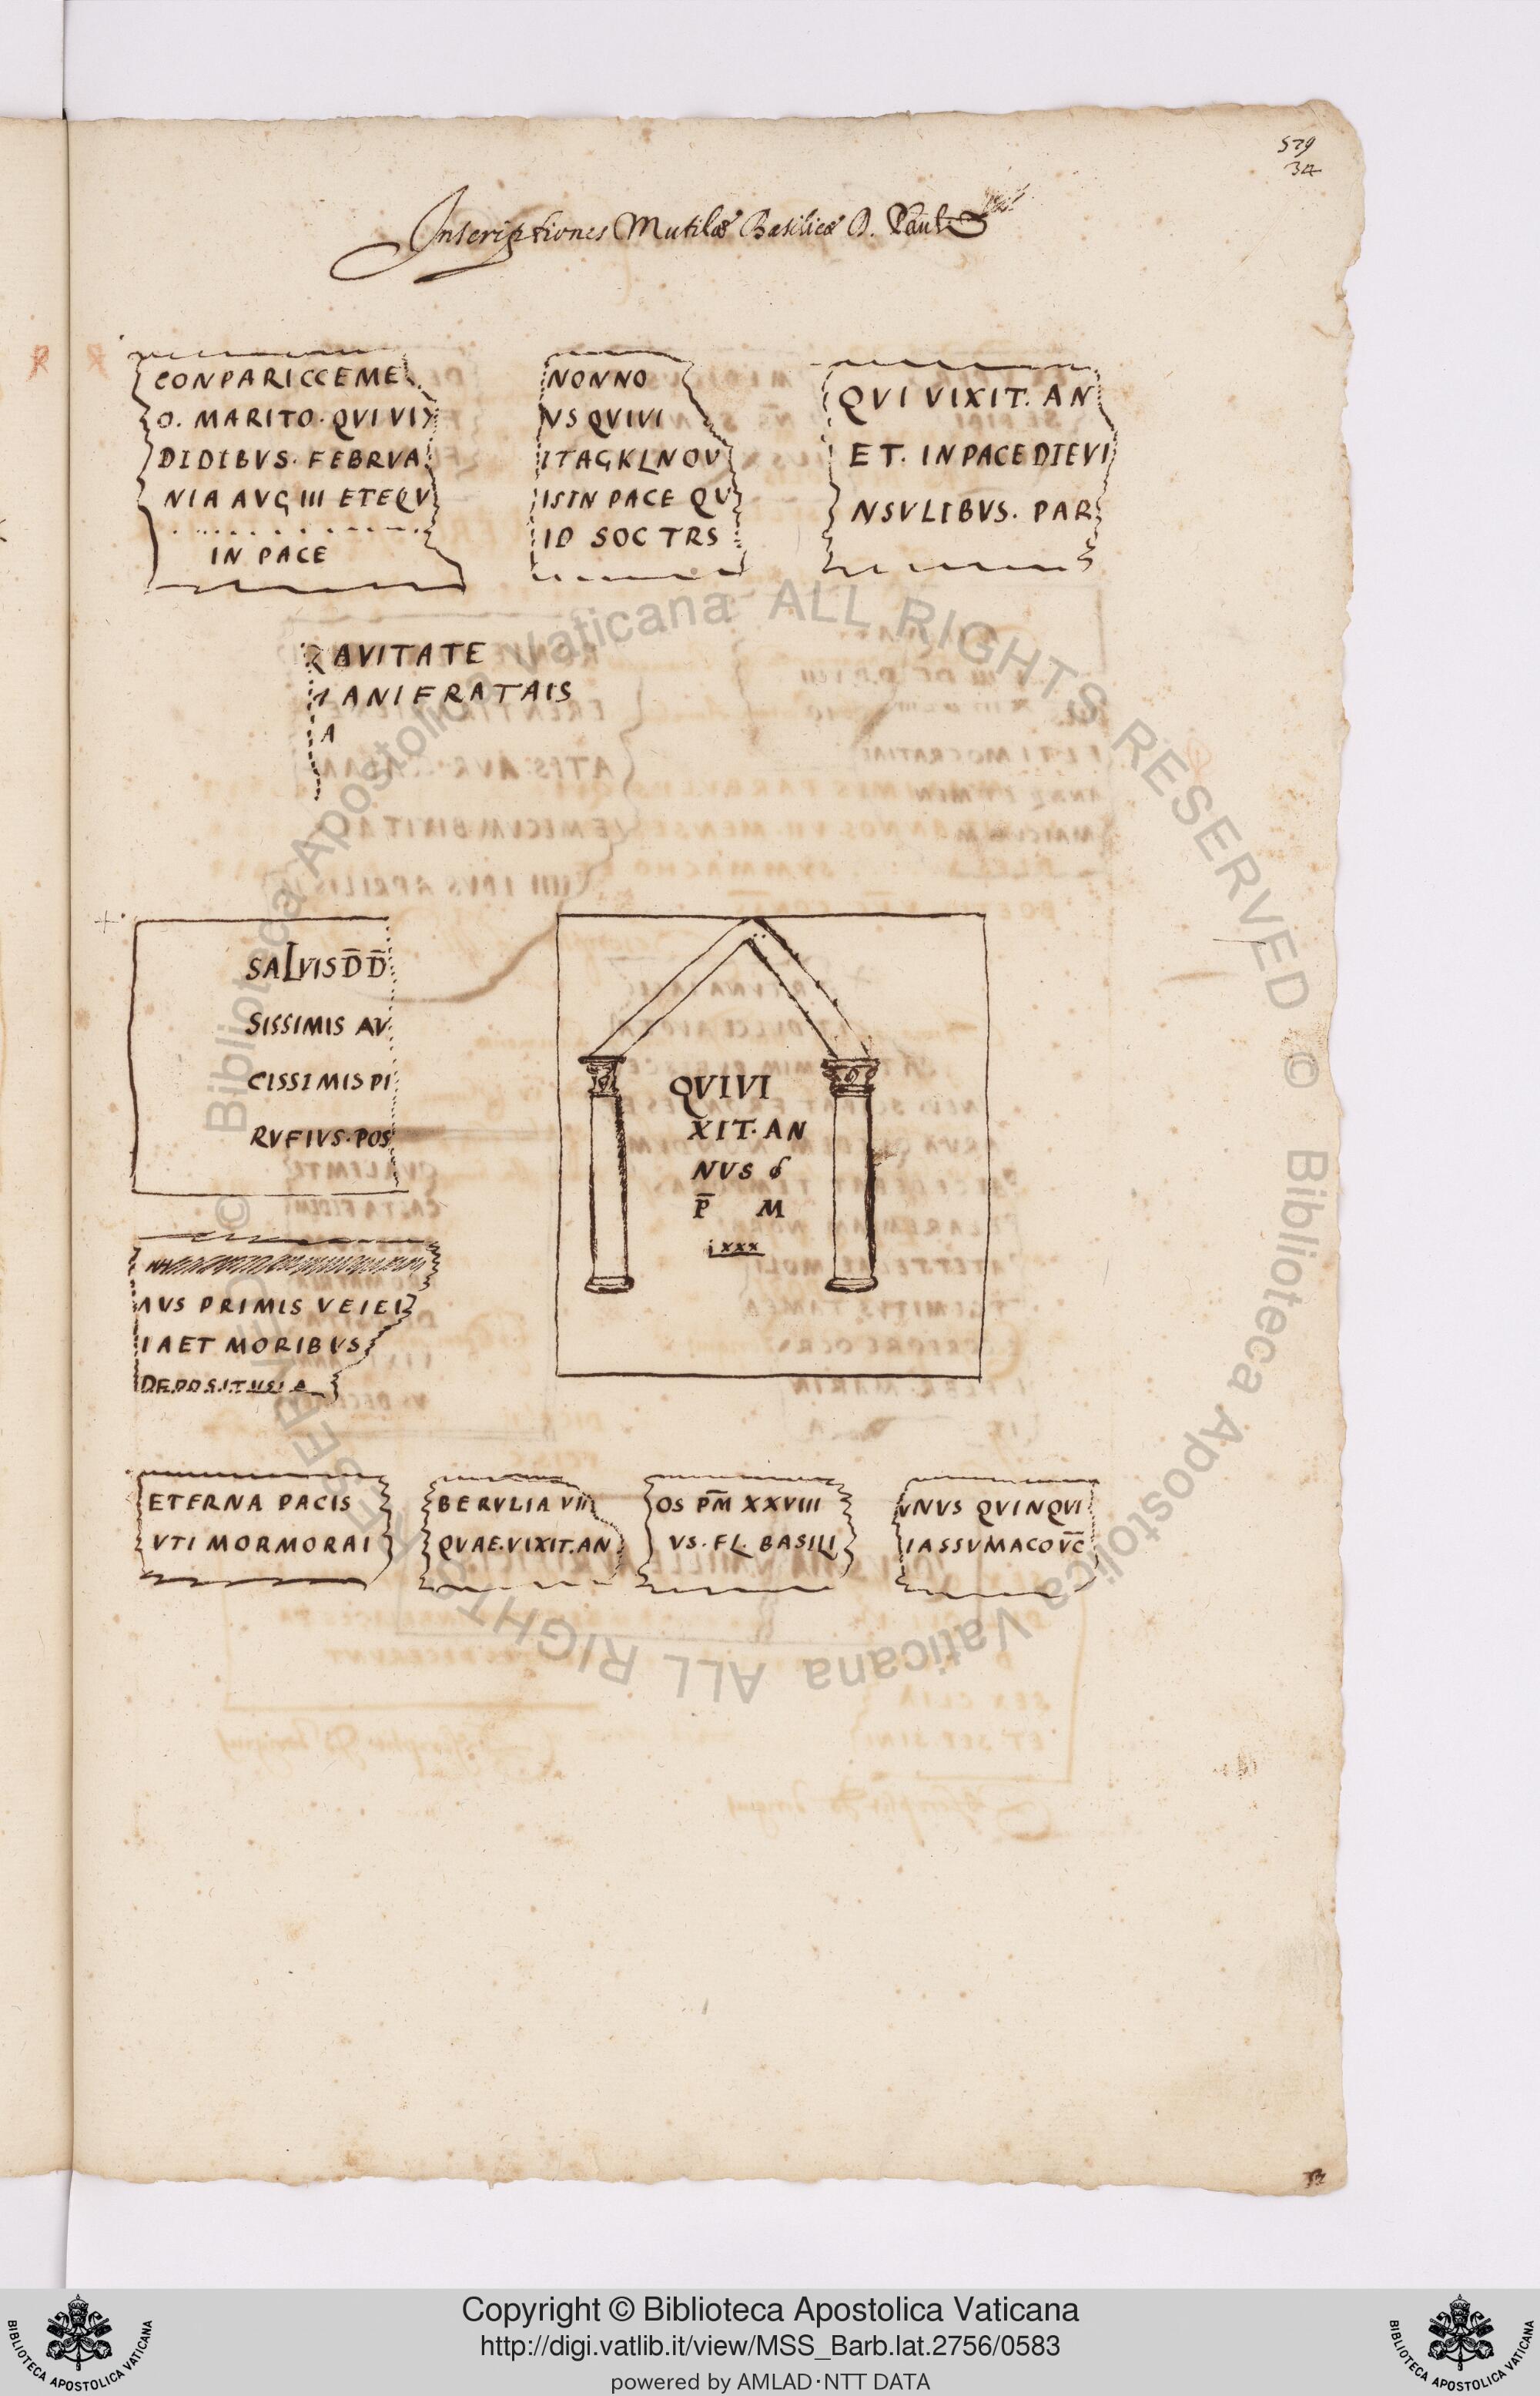 529
34
Inscriptiones Mutilæ Basilicæ D. Pauli
CONPARICCEME
O. MARITO. QVI VIX
DIDIBVS. FEBRVA
NIA AVG III ETEQV
IN PACE
NONNO
NS QVIVI
ITAGKLNOV
ISIN PACE QV
ID SOC TRS
QVI VIXIT. AN
ET. INPACE DIEVI
NSVLIBVS. PAR
RAVITATE
ANIFRATAIS
A
SALVIS D̅ D̅
SISSIMIS AV
CISSIMIS PI
RVFIVS. POS
QVIVI
XIT. AN
NVS
P̅ M
ixxx
AVS PRIMIS VEIEI
IAET MORIBVS
DEPOSITUSI A
ETERNA PACIS
VTI MORMORAI
BERVLIA VII
QVAE. VIXIT. AN
OS P̅M̅ XXVIII
VS. FL. BASILI
VNVS QVINQVI
IASSVMACOV̅C̅
Copyright © Biblioteca Apostolica Vaticana
http://digi.vatlib.it/view/MSS_Barb.lat.2756/0583
powered by AMLAD·NTT DATA
BIBLIOTECA APOSTOLICA VATICANA
BIBLIOTECA APOSTOLICA VATICANA
© Biblioteca Apostolica Vaticana ALL RIGHTS RESERVED © Biblioteca Apostolica Vaticana ALL RIGHTS RESERVED